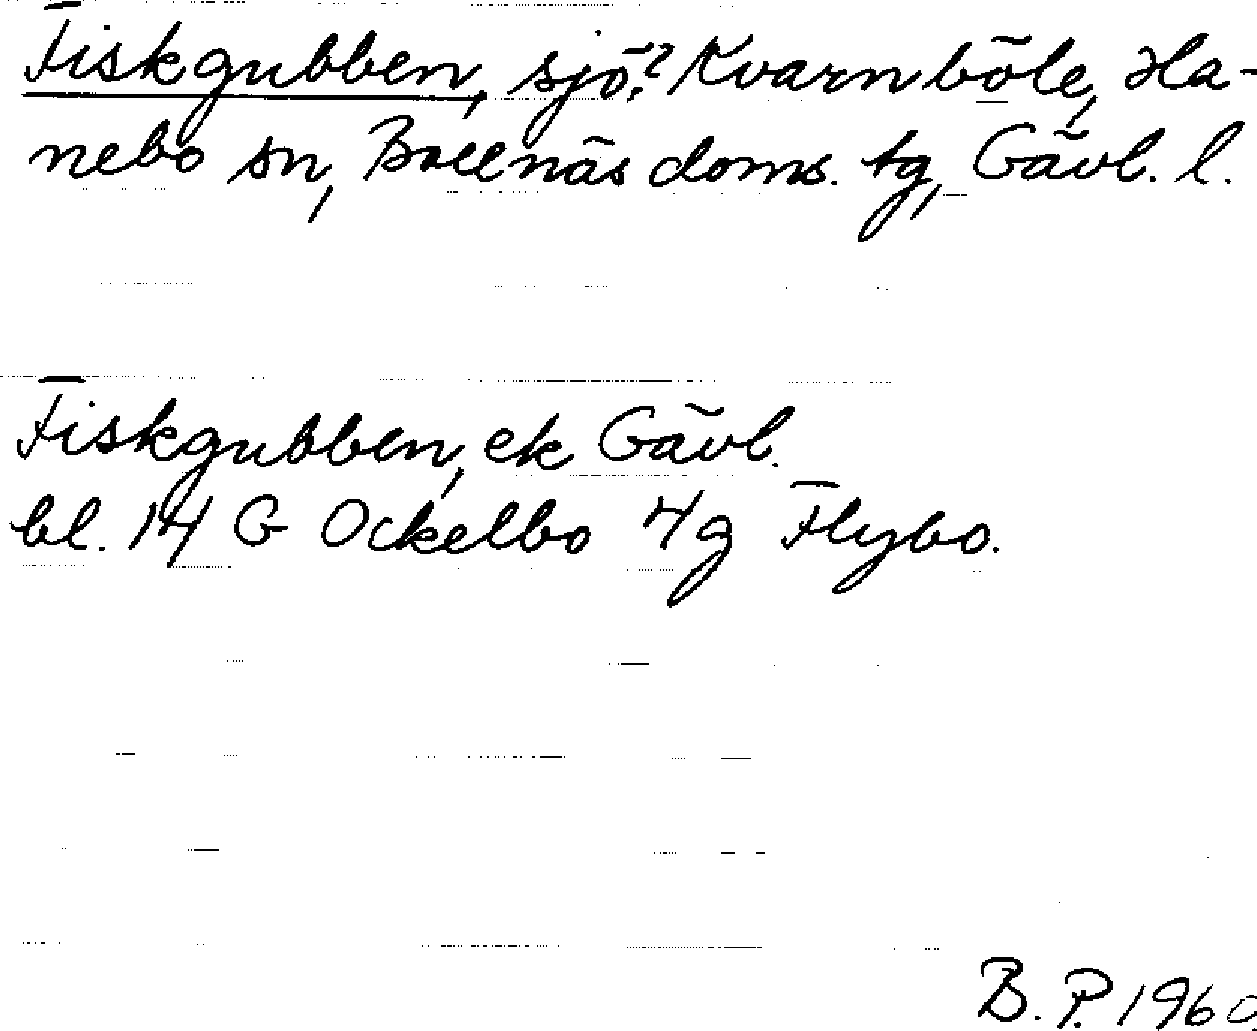 Fiskgubben, sjö? Kvarnböle, Ha-
nebo sn, Bollnäs doms. tg, Gävl. l.
Fiskgubben, ek Gävl.
bl. 14 G Ockelbo 4g Flybo.
B. P. 1960